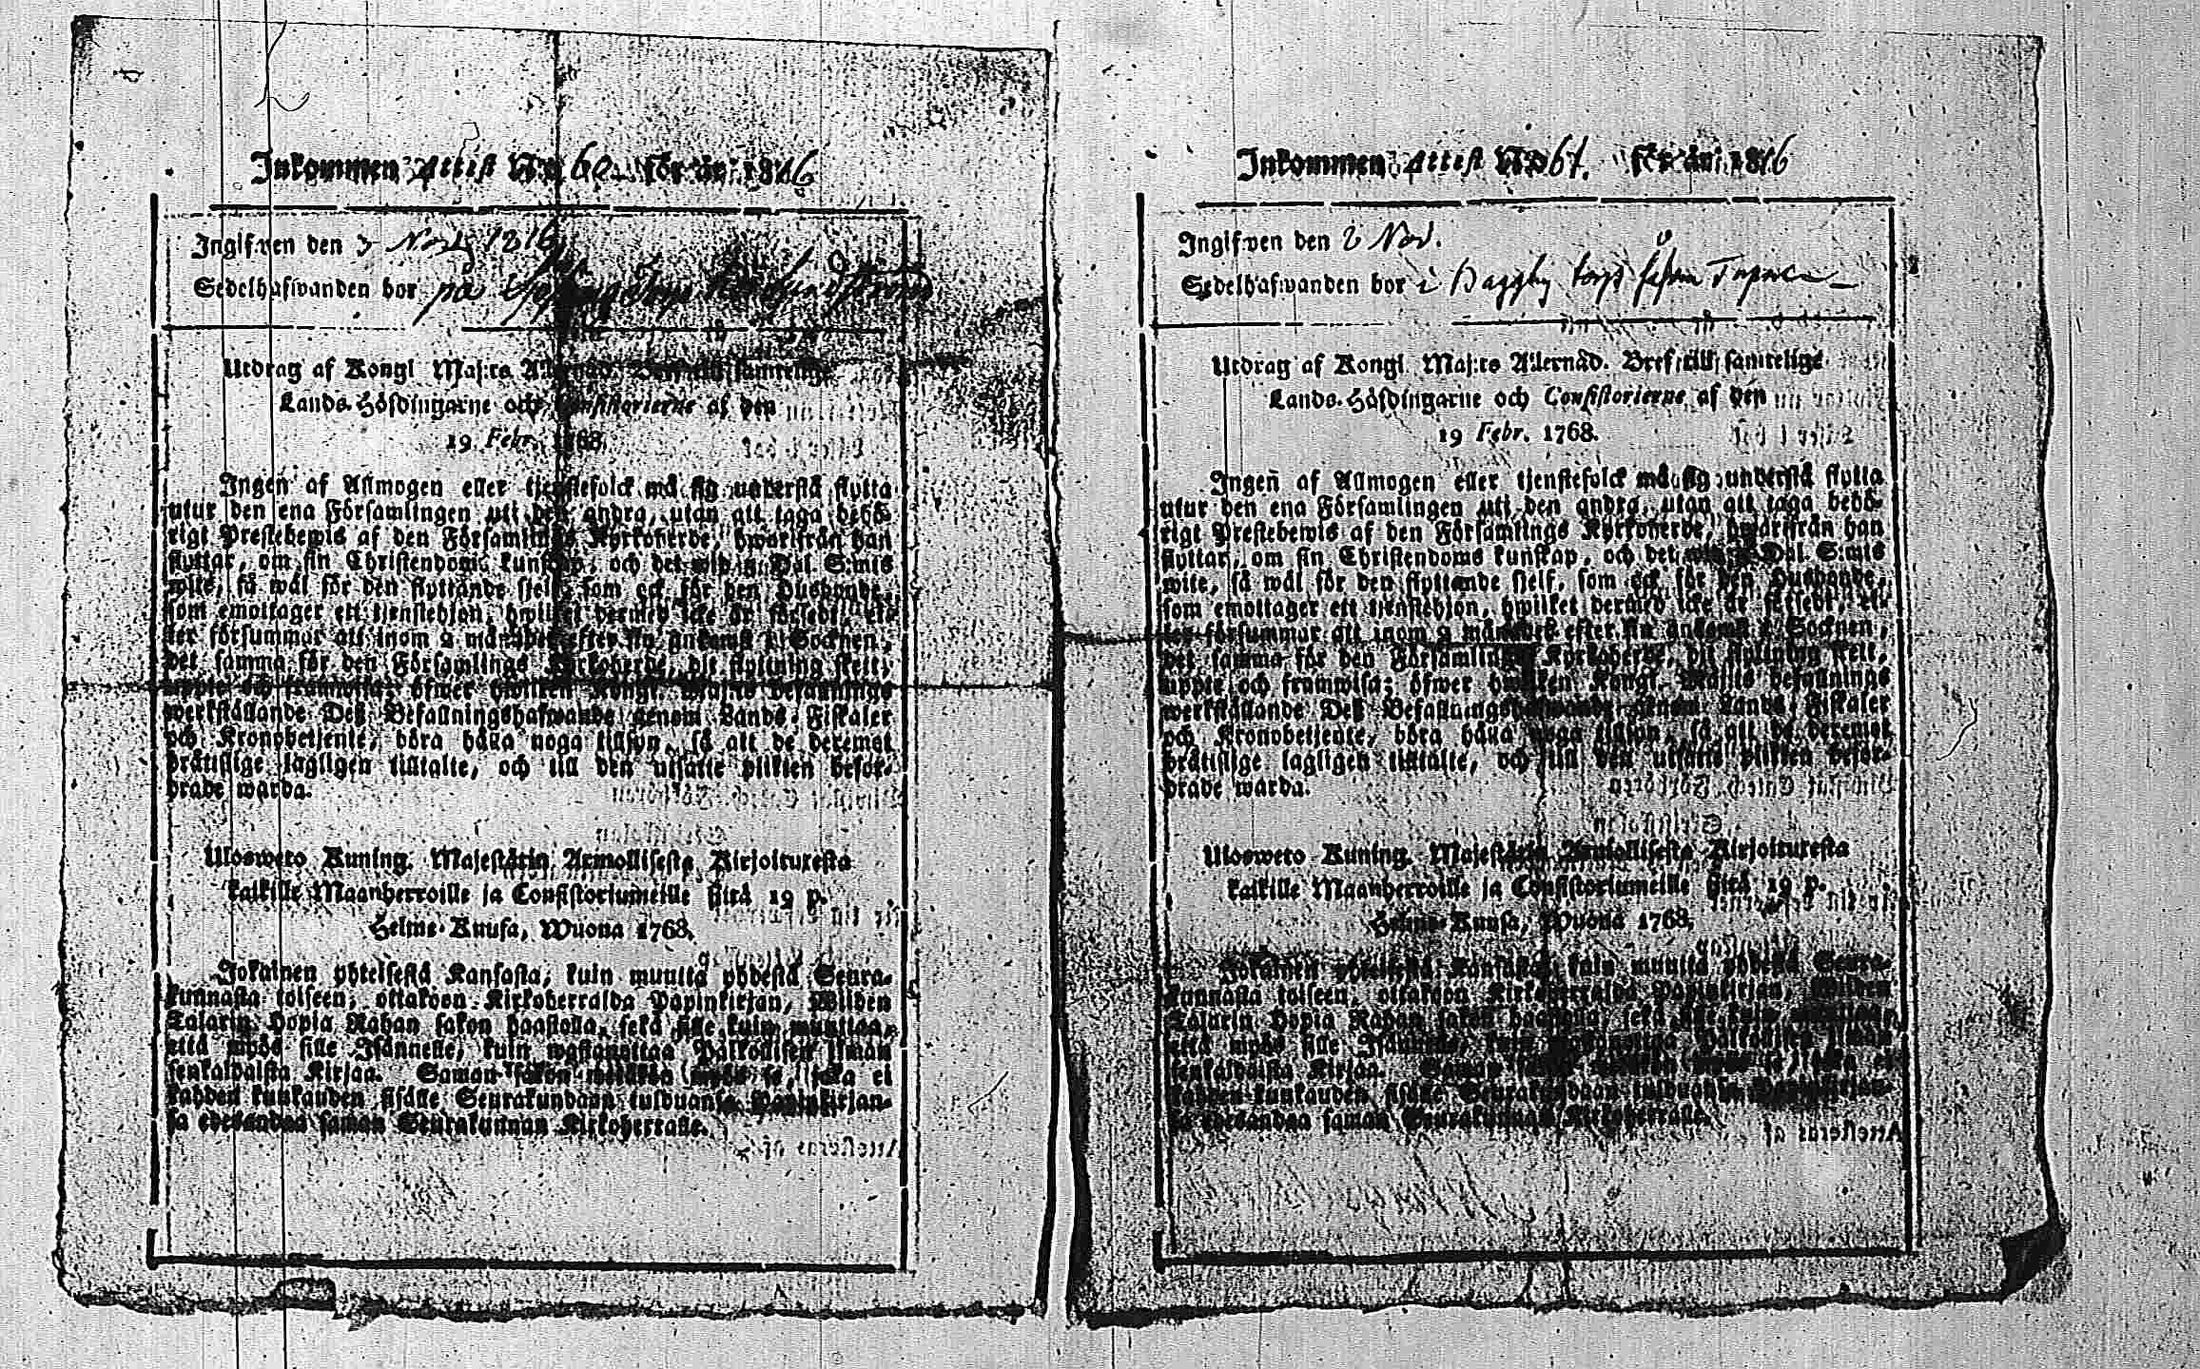 Inkommen Attest N:o 60 för år 1816
Ingifwen den 3 Nov 1816
Sedelhafwanden bor på
Utdrag af Kongl. Maj:ts Allernåd. Bref till samtelige
Lands-Höfdingarne och Consistorierne af den
19 Febr. 1768.
Ingen af Allmogen eller tjenstefolck må sig understå flytta
utur den ena Församlingen uti den andra, utan att taga behö-
rigt Prestebewis af den Församlings Kyrkoherde, hwarifrån han
flyttar, om sin Christendoms kunskap, och det wid 2 Dal. S:mts
wite, så wäl för den flyttande sjelf, som ock för den Husbonde,
som emottager ett tjenstehjon, hwilket dermed icke är försedt, el-
ler försummar att inom 2 månader efter sin ankomst i Socknen,
det samma för den Församlings Kyrkoherde, dit flyttning skett,
uppte och framwisa; öfwer hwilken Kongl. Maj:ts befallnings
werkställande Deß Befallningshafwande genom Lands-Fiskaler
och Kronobetjente, böra hålla noga tillsyn, så att de deremot
brätslige lagligen tilltalte, och till den utsatte plikten befor-
drade warda.
Ulosweto Kuning. Majestätin Armollisesta Kirjoituresta
kaikille Maanherroille ja Consistoriumeille siitä 19 p.
Helme-Kuusa, Wuona 1768.
Jokainen yhteisestä Kansasta, kuin muuttà yhdestä Seura-
kunnasta toiseen, ottakoon Kirkoherralda Papinkirjan, Wiiden
Talarin Hopia Rahan sakon haastolla, sekä sille kuin muuttaa,
että myös sille Isännelle, kuin wastanottaa Palkollisen ilman
senkaldaista Kirjaa. Saman sakon wetäkön myös se, joka ei
kahden kuukauden sisälle Seurakundaan tulduansa Papinkirjan-
sa edesandaa saman Seurakunnan Kirkoherralle.
Inkommen Attest N:o 61. för år 1816
Ingifwen den 2 Nov.
Sedelhafwanden bor i Haggby
Utdrag af Kongl. Maj:ts Allernåd. Bref till samtelige
Lands-Höfdingarne och Consistorierne af den
19 Febr. 1768.
Ingen af Allmogen eller tjenstefolck må sig understå flytta
utur den ena Församlingen uti den andra, utan att taga behö-
rigt Prestebewis af den Församlings Kyrkoherde, hwarifrån han
flyttar, om sin Christendoms kunskap, och det wid 2 Dal. S:mts
wite, så wäl för den flyttande sjelf, som ock för den Husbonde,
som emottager ett tjenstehjon, hwilket dermed icke är försedt, el-
ler försummar att inom 2 månader efter sin ankomst i Socknen,
det samma för den Församlings Kyrkoherde, dit flyttning skett,
uppte och framwisa; öfwer hwilken Kongl. Maj:ts befallnings
werkställande Deß Befallningshafwande genom Lands-Fiskaler
och Kronobetjente, böra hålla noga tillsyn, så att de deremot
brätslige lagligen tilltalte, och till den utsatte plikten befor-
drade warda.
Ulosweto Kuning. Majestätin Armollisesta Kirjoituresta
kaikille Maanherroille ja Consistoriumeille siitä 19 p.
Helme-Kuusa, Wuona 1768.
Jokainen yhteisestä Kansasta, kuin muuttà yhdestä Seura-
kunnasta toiseen, ottakoon Kirkoherralda Papinkirjan, Wiiden
Talarin Hopia Rahan sakon haastolla, sekä sille kuin muuttaa,
että myös sille Isännelle, kuin wastanottaa Palkollisen ilman
senkaldaista Kirjaa. Saman sakon wetäkön myös se, joka ei
kahden kuukauden sisälle Seurakundaan tulduansa Papinkirjan-
sa edesandaa saman Seurakunnan Kirkoherralle.